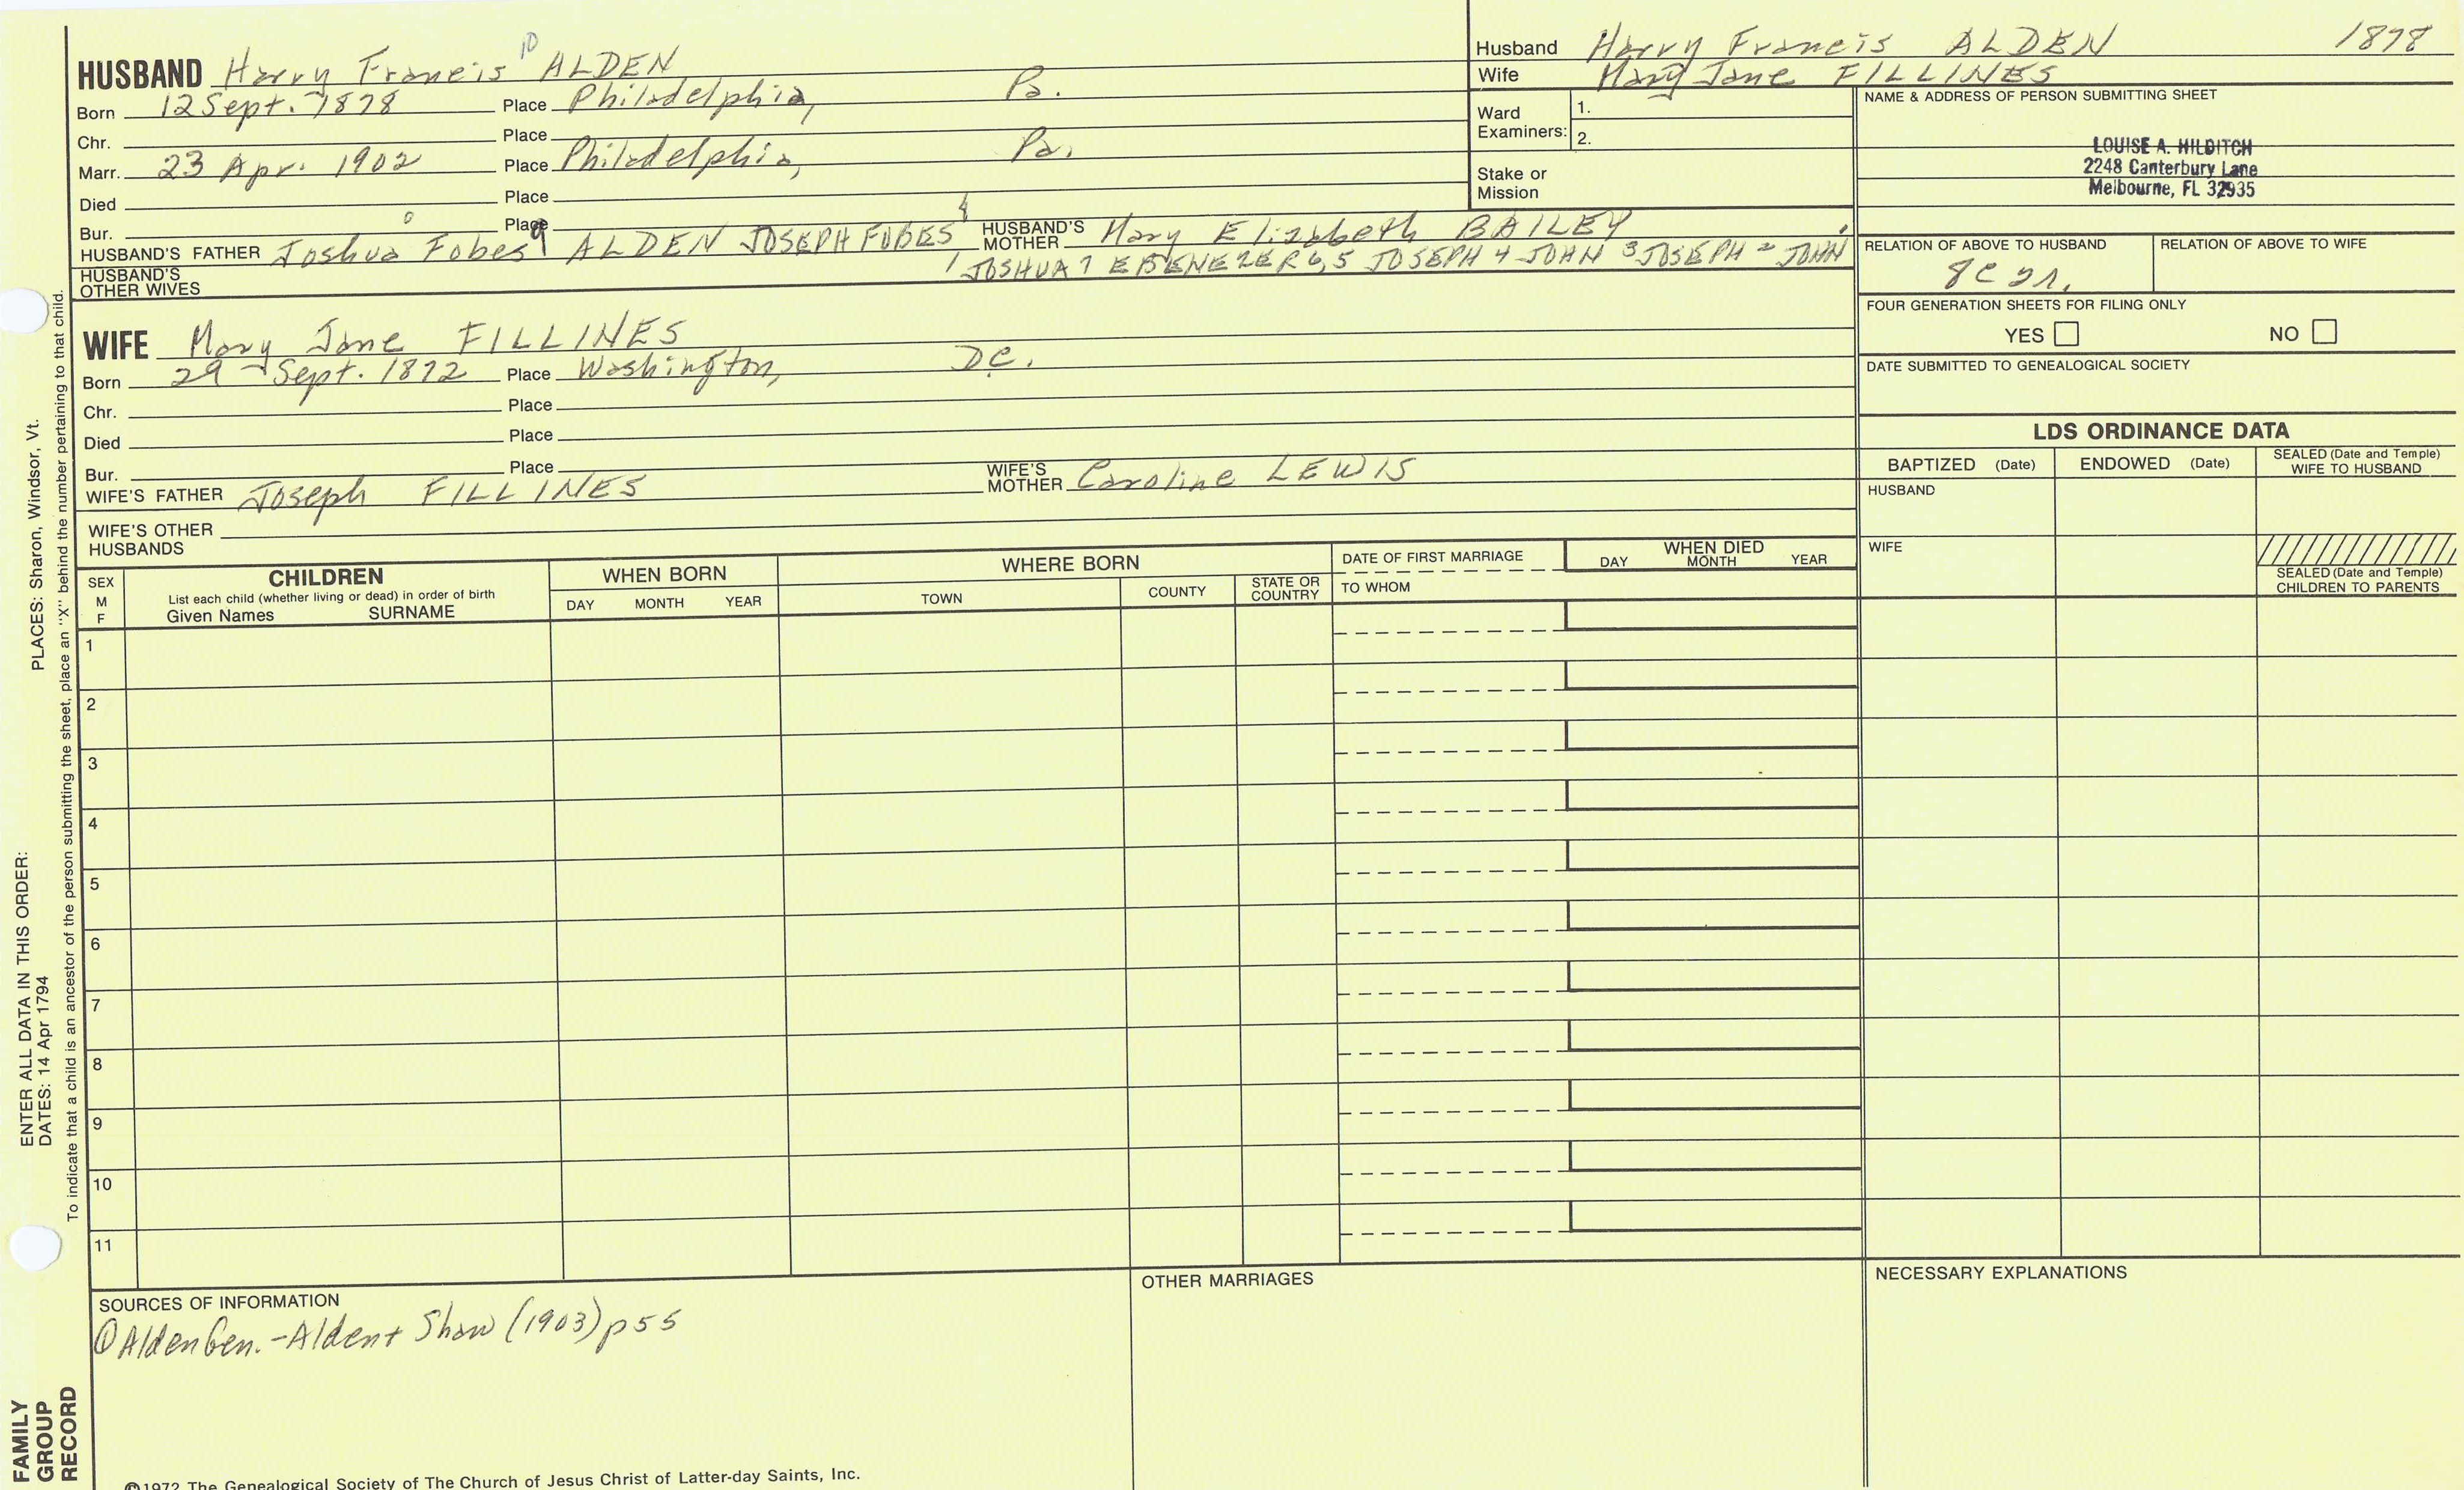 HUSBAND Harry Francis 10 ALDEN
Born 12 Sept. 1878 Place Philadelphia, Pa.
Chr. Place
Marr. 23 Apr. 1902 Place Philadelphia, Pa.
Died Place
Bur. Place
HUSBAND'S FATHER Joshua Fobes 9 ALDEN JOSEPH FOBES HUSBAND'S MOTHER Mary Elizabeth BAILEY
HUSBAND'S OTHER WIVES JOSHUA 7 EBENEZER 6,5 JOSEPH 4 JOHN 3 JOSEPH 2 JOHN
Husband Harry Francis ALDEN 1878
Wife Mary Jane FILLINES
Ward Examiners: 1.
2.
Stake or Mission
NAME & ADDRESS OF PERSON SUBMITTING SHEET
LOUISE A. HILDITCH
2248 Canterbury Lane
Melbourne, FL 32935
RELATION OF ABOVE TO HUSBAND RELATION OF ABOVE TO WIFE
8c
FOUR GENERATION SHEETS FOR FILING ONLY
YES NO
DATE SUBMITTED TO GENEALOGICAL SOCIETY
WIFE Mary Jane FILLINES
Born 29 Sept. 1872 Place Washington, D.C.
Chr. Place
Died Place
Bur. Place
WIFE'S FATHER Joseph FILLINES WIFE'S MOTHER Caroline LEWIS
WIFE'S OTHER HUSBANDS
LDS ORDINANCE DATA
BAPTIZED (Date) ENDOWED (Date) SEALED (Date and Temple) WIFE TO HUSBAND
HUSBAND
WIFE
SEALED (Date and Temple) CHILDREN TO PARENTS
SEX M F
CHILDREN
List each child (whether living or dead) in order of birth
Given Names SURNAME
WHEN BORN
DAY MONTH YEAR
WHERE BORN
TOWN COUNTY STATE OR COUNTRY
DATE OF FIRST MARRIAGE
TO WHOM
WHEN DIED
DAY MONTH YEAR
1
2
3
4
5
6
7
8
9
10
11
SOURCES OF INFORMATION
① Alden Gen. - Alden + Shaw (1903) p 55
OTHER MARRIAGES
NECESSARY EXPLANATIONS
©1972 The Genealogical Society of The Church of Jesus Christ of Latter-day Saints, Inc.
ENTER ALL DATA IN THIS ORDER:
DATES: 14 Apr 1794 PLACES: Sharon, Windsor, Vt.
To indicate that a child is an ancestor of the person submitting the sheet, place an "X" behind the number pertaining to that child.
FAMILY
GROUP
RECORD